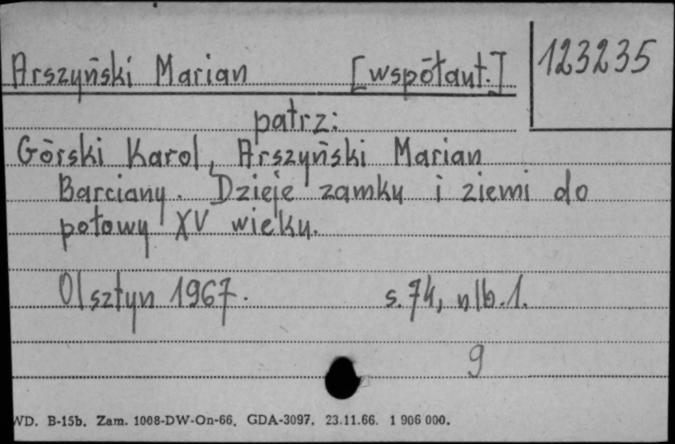 Arszyński Marian [współaut.] 123235
patrz:
Górski Karol, Arszyński Marian
Barciany. Dzieje zamku i ziemi do
połowy XV wieku.
Olsztyn 1967. s. 74, nlb. 1.
9
WD. B-15b. Zam. 1008-DW-On-66. GDA-3097. 23.11.66. 1 906 000.